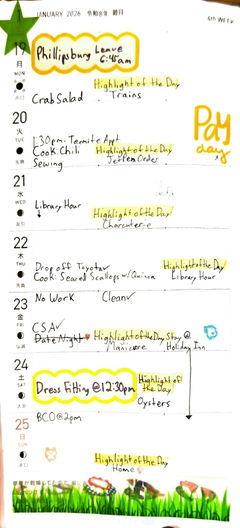 JANUARY 2026 令和8年 睦月
6th WEEK
19
月
MON
Phillipsburg Leave
6:45am
Highlight of the Day
Crab Salad Trains
20
火
TUE
Pay
day
1:30pm- Termite Appt
Cook: Chili Highlight of the Day
Sewing Jeffem Order
21
水
WED
Library Hour
Highlight of the Day
Charcuterie
22
木
THU
Drop off Toyota Highlight of the Day
Cook: Seared Scallops w/ Quinoa Library Hour
23
金
FRI
No Work Clean✓
CSA✓
Date Night ♥ Highlight of the Day Stay @
Manicure Holiday Inn
24
土
SAT
Dress Fitting @ 12:30pm
Highlight of
the Day
Oysters
25
日
SUN
BCO @ 2pm
Highlight of the Day
Home